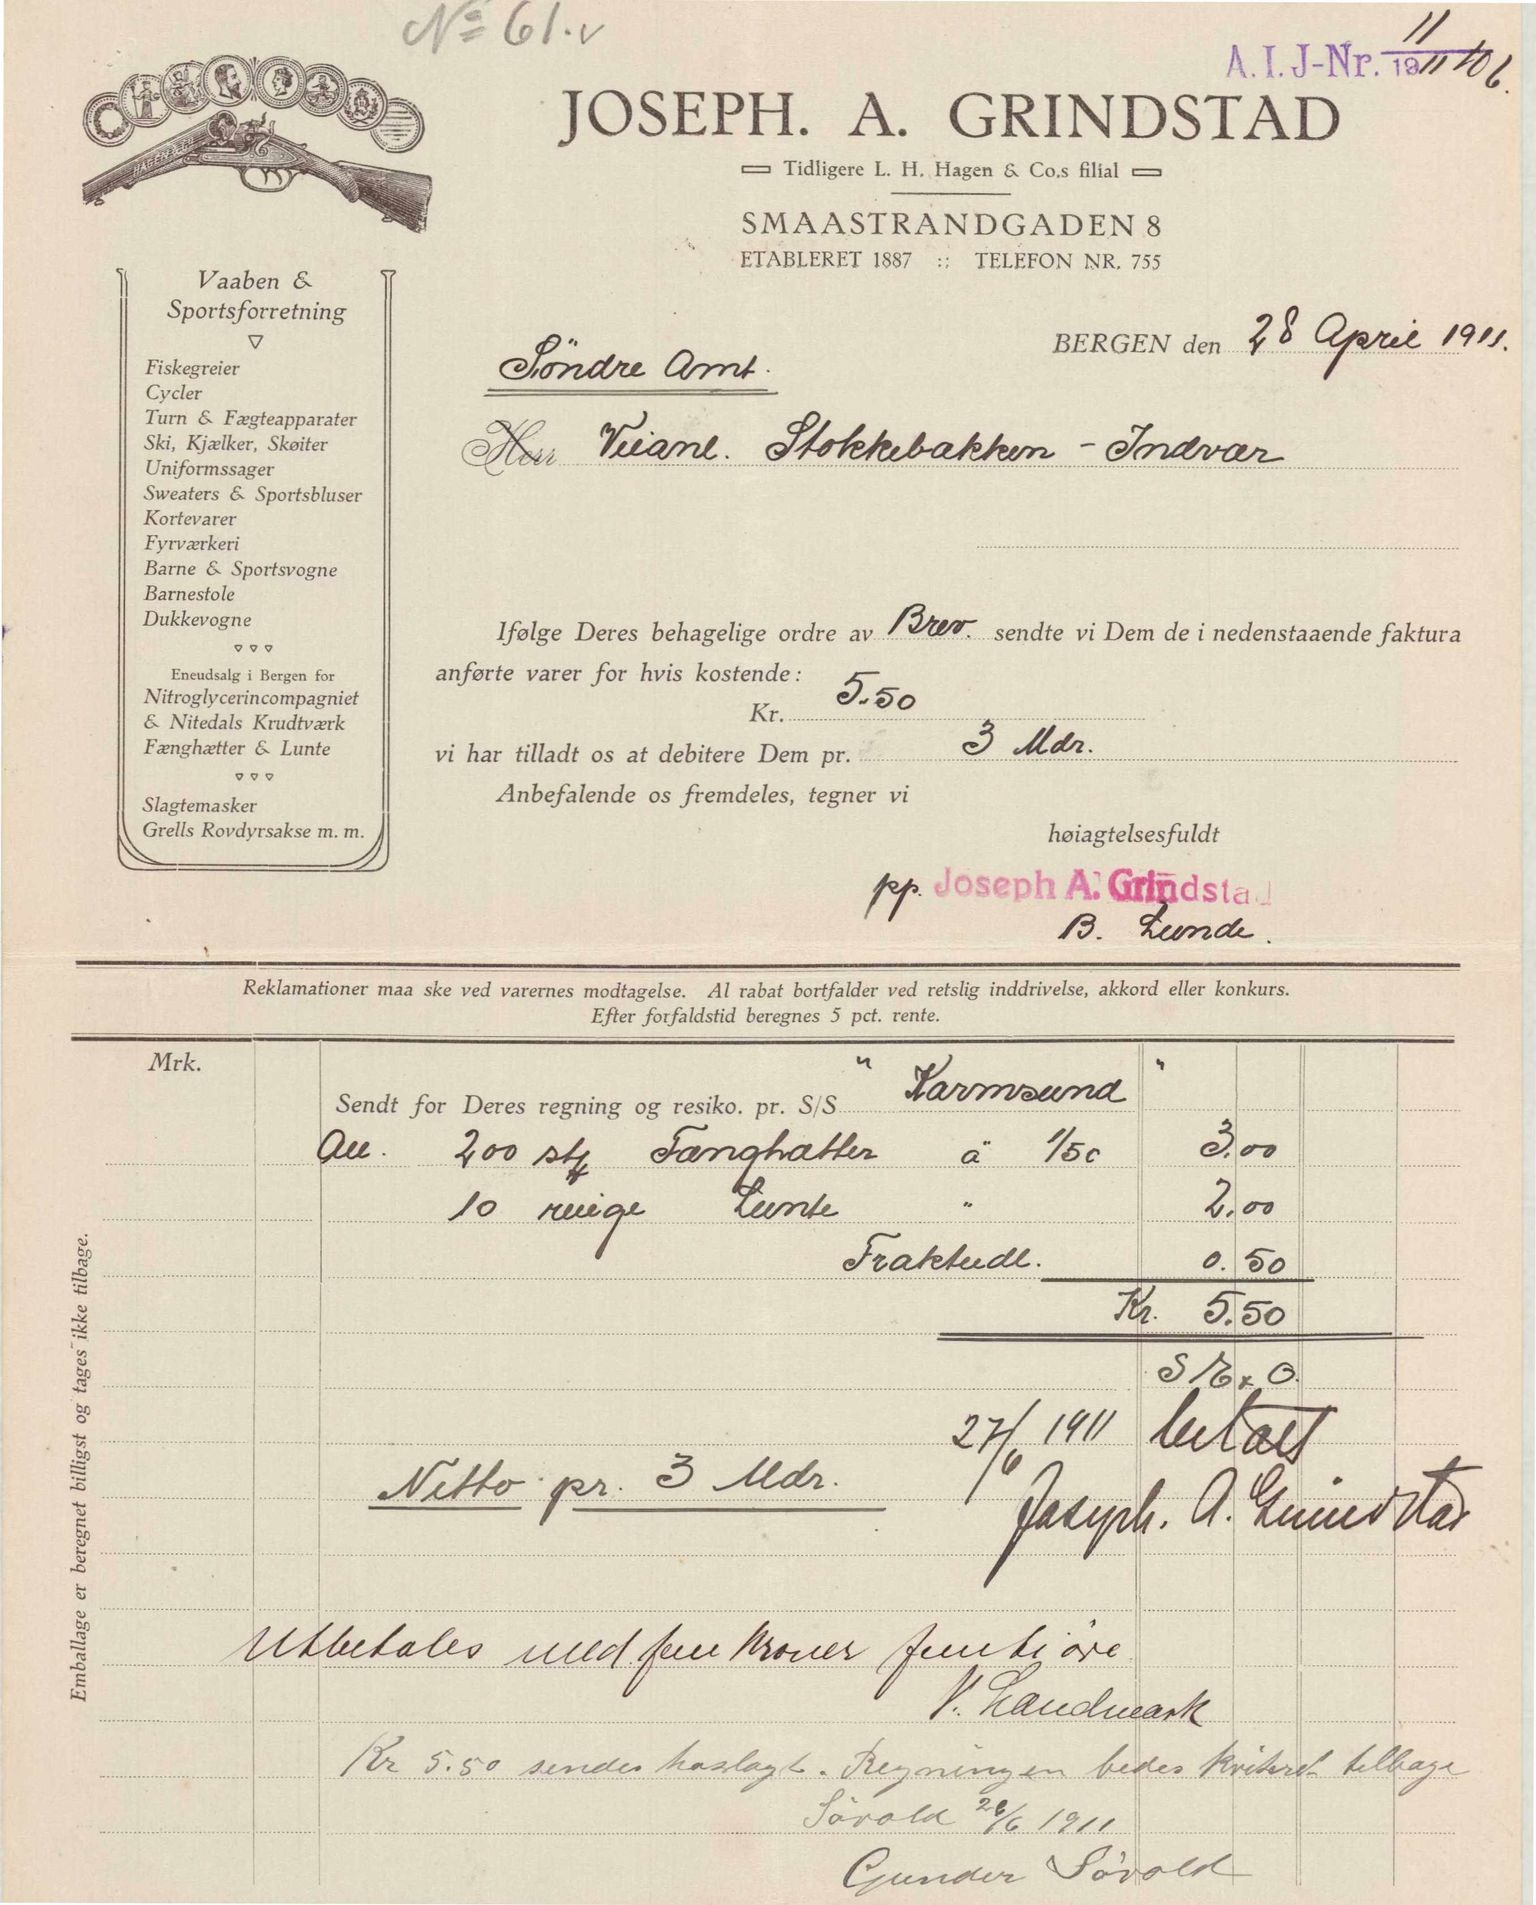 No 61. v
A. I. J-Nr. 11/1911 106.
HAGEN & Co
JOSEPH. A. GRINDSTAD
Tidligere L. H. Hagen & Co.s filial
SMAASTRANDGADEN 8
ETABLERET 1887 :: TELEFON NR. 755
Vaaben &
Sportsforretning
Fiskegreier
Cycler
Turn & Fægteapparater
Ski, Kjælker, Skøiter
Uniformssager
Sweaters & Sportsbluser
Kortevarer
Fyrværkeri
Barne & Sportsvogne
Barnestole
Dukkevogne
Eneudsalg i Bergen for
Nitroglycerincompagniet
& Nitedals Krudtværk
Fænghætter & Lunte
Slagtemasker
Grells Rovdyrsakse m. m.
BERGEN den 28 April 1911.
Söndre Amt.
Herr Veianl. Stokkebakken - Indvær
Ifølge Deres behagelige ordre av Brev. sendte vi Dem de i nedenstaaende faktura
anførte varer for hvis kostende:
Kr. 5.50
vi har tilladt os at debitere Dem pr. 3 Mdr.
Anbefalende os fremdeles, tegner vi
høiagtelsesfuldt
pp. Joseph A. Grindstad
B. Lunde.
Reklamationer maa ske ved varernes modtagelse. Al rabat bortfalder ved retslig inddrivelse, akkord eller konkurs.
Efter forfaldstid beregnes 5 pct. rente.
Mrk.
Sendt for Deres regning og resiko. pr. S/S "Karmsund"
200 stk Fænghætter à 1/50 3.00
10 ringe Lunte " 2.00
Fraktudl. 0.50
Kr. 5.50
S E & O.
27/6 1911 betalt
Netto pr. 3 Mdr.
Joseph. A. Grindstad
Utbetales med fem kroner femti öre
V. Landmark
Kr 5.50 sendes hoslagt. Regningen bedes kvitteret tilbage
Sörold 26/6 1911
Gunder Sörold
Emballage er beregnet billigst og tages ikke tilbage.